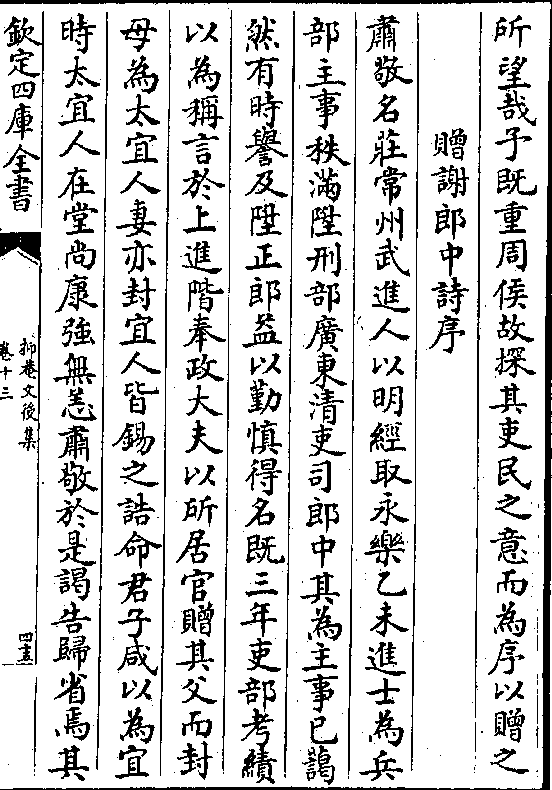 所望哉予既重周侯故探其吏民之意而為序以贈之
贈謝郎中詩序
肅敬名莊常州武進人以明經取永樂乙未進士為兵
部主事秩滿陞刑部廣東清吏司郎中其為主事已藹
然有時譽及陞正郎益以勤慎得名既三年吏部考績
以為稱言於上進階奉政大夫以所居官贈其父而封
母為太宜人妻亦封宜人皆錫之誥命君子咸以為宜
時太宜人在堂尚康強無恙肅敬於是謁告歸省焉其
欽定四庫全書
抑菴文後集
卷十三
四十五